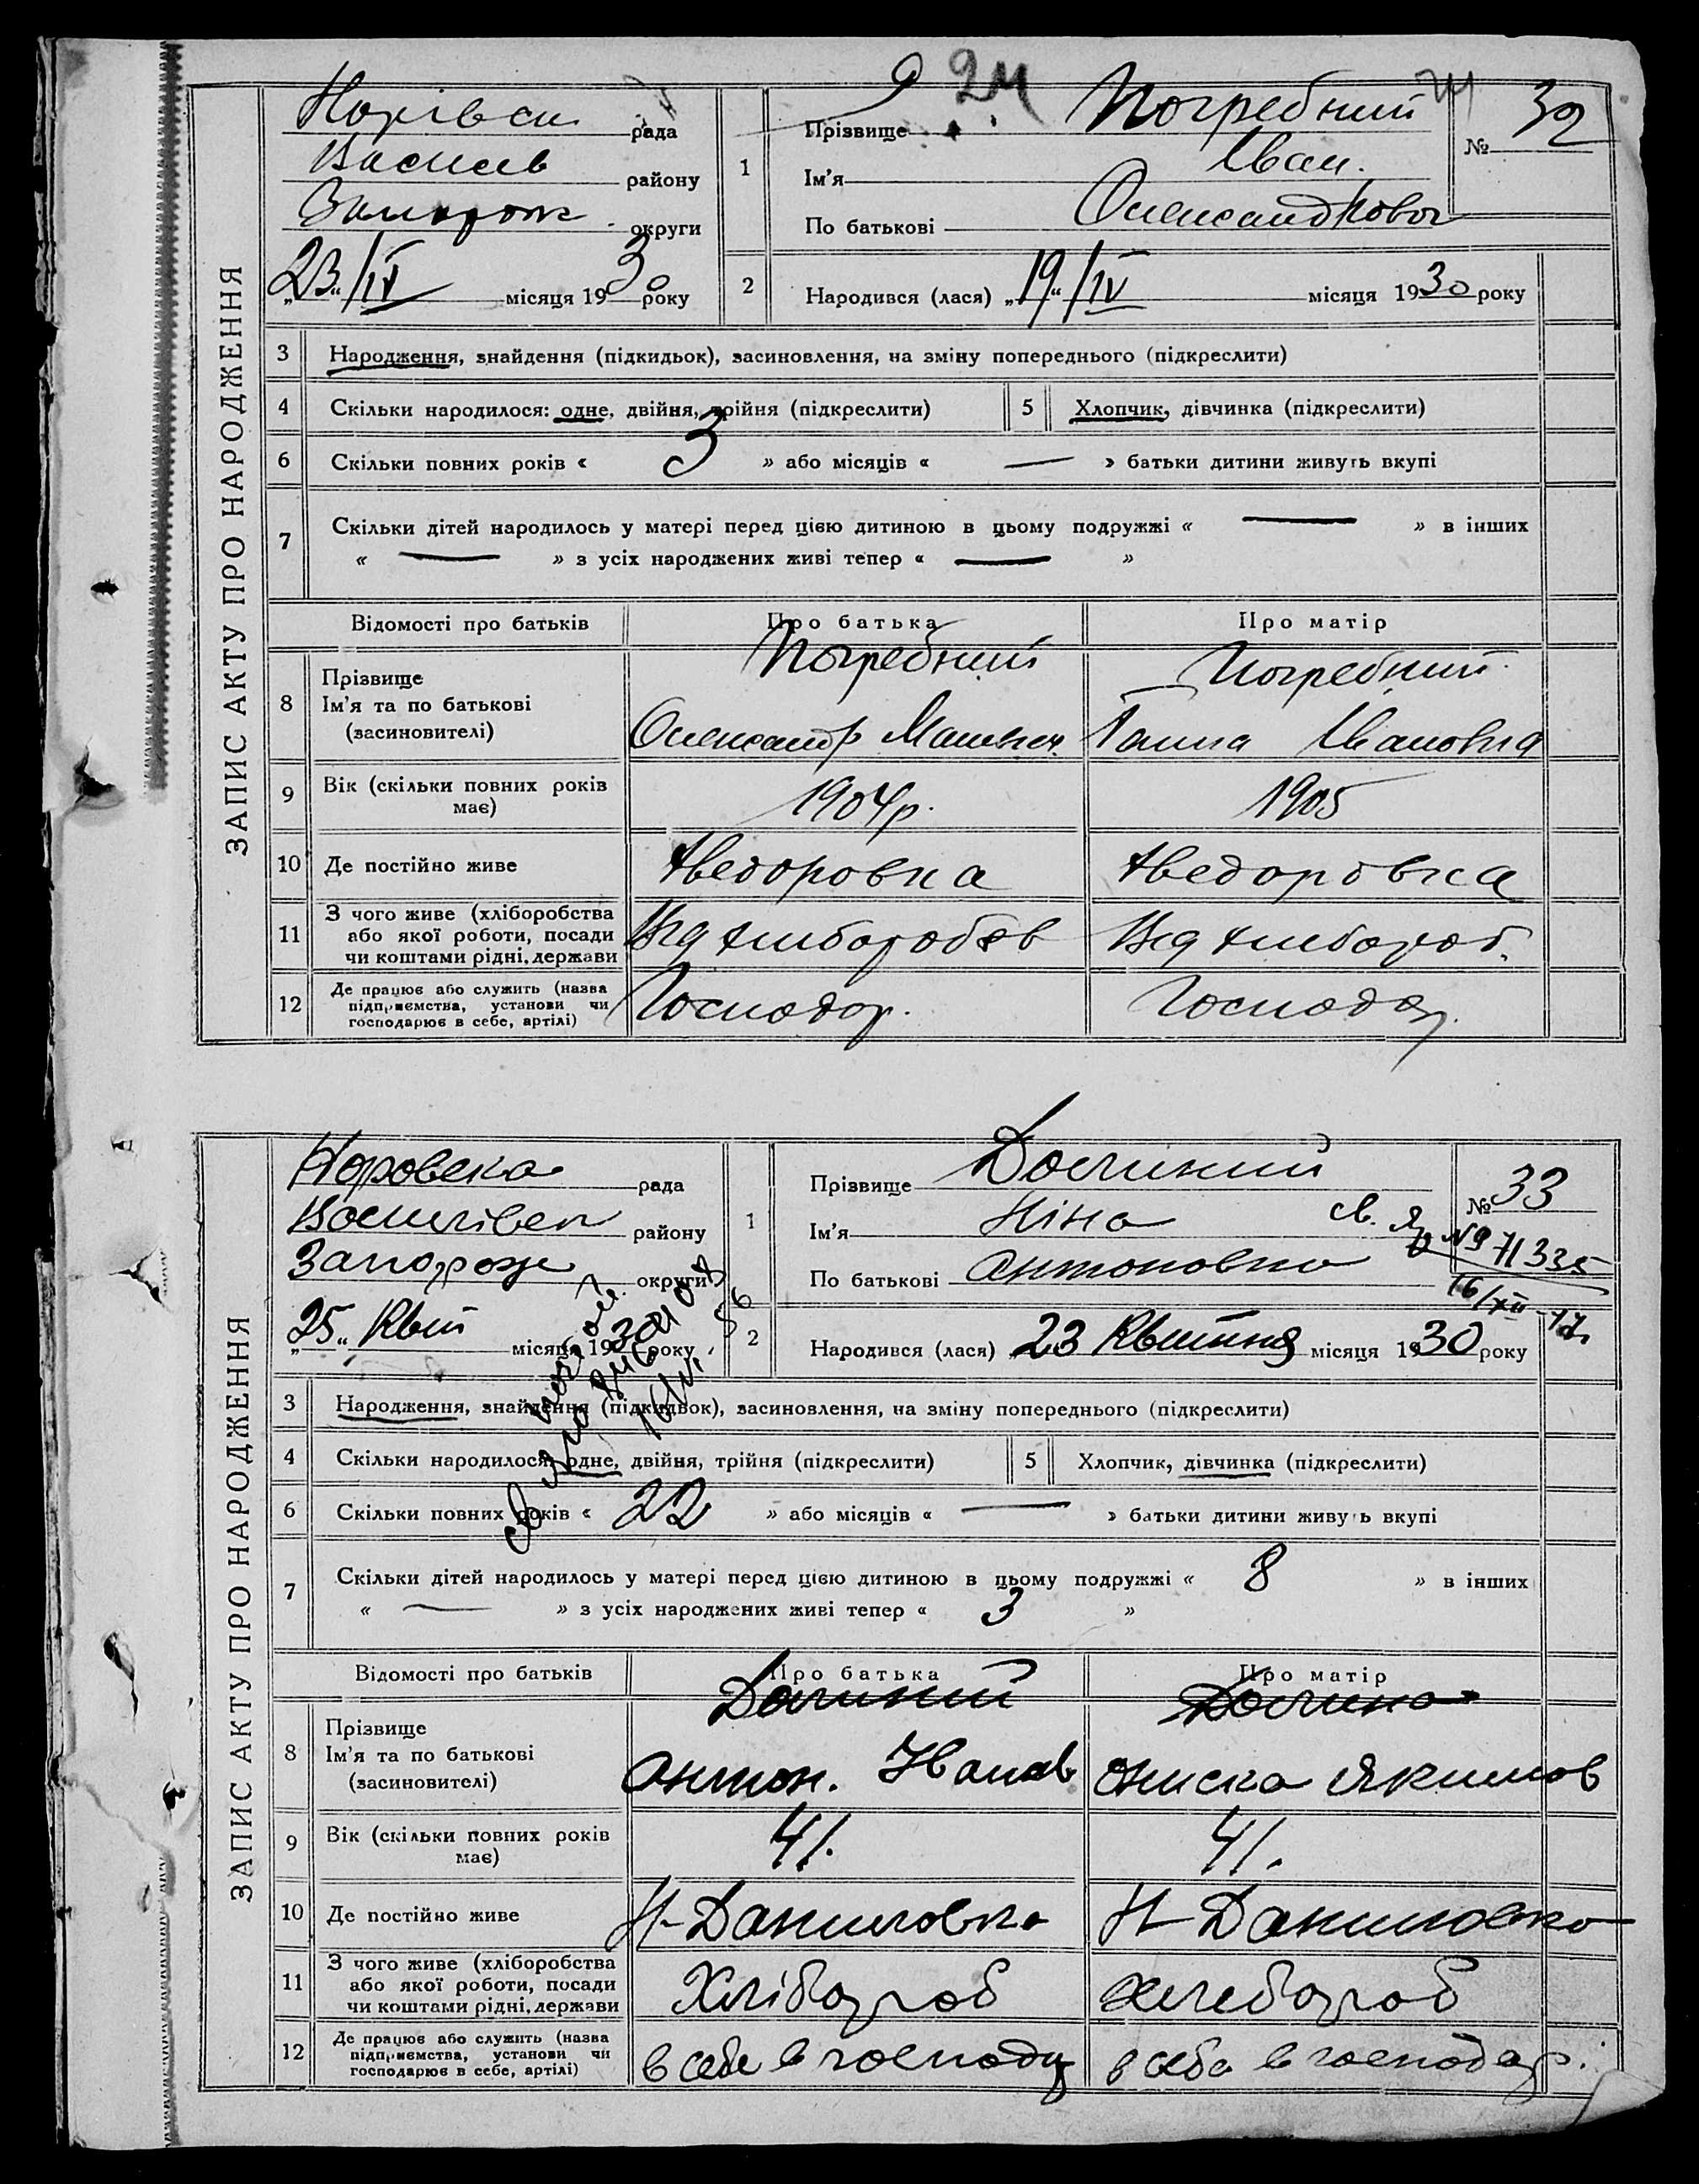 24
ЗАПИС АКТУ ПРО НАРОДЖЕННЯ
рада
району
Запорож округи
„23“/IV місяця 1930 року
1
Прізвище Погребний
Ім'я Іван.
По батькові Олександрович
№ 32
2
Народився (лася) „19“/IV місяця 1930 року
3 Народження, знайдення (підкидьок), засиновлення, на зміну попереднього (підкреслити)
4 Скільки народилося: одне, двійня, трійня (підкреслити) 5 Хлопчик, дівчинка (підкреслити)
6 Скільки повних років « 3 » або місяців « — » батьки дитини живуть вкупі
7 Скільки дітей народилось у матері перед цією дитиною в цьому подружжі « — » в інших
« — » з усіх народжених живі тепер « — »
Відомості про батьків Про батька Про матір
8 Прізвище
Ім'я та по батькові
(засиновителі)
Погребний
Олександр
Погребний
Ганна Івановна
9 Вік (скільки повних років
має)
1904р. 1905
10 Де постійно живе Федоровка Федоровка
11 З чого живе (хліборобства
або якої роботи, посади
чи коштами рідні, держави
Від хлібороб.
12 Де працює або служить (назва
підприємства, установи чи
господарює в себе, артілі)
Господар. Господар.
ЗАПИС АКТУ ПРО НАРОДЖЕННЯ
рада
Василівск району
Запорож округи
„25“ Квіт місяця 1930 року
1
Прізвище
Ім'я Ніна
По батькові Антоновна
№ 33
св.
№ 71335
16/XII
2
Народився (лася) „23 Квітня місяця 1930 року
3 Народження, знайдення (підкидьок), засиновлення, на зміну попереднього (підкреслити)
4 Скільки народилося: одне, двійня, трійня (підкреслити) 5 Хлопчик, дівчинка (підкреслити)
6 Скільки повних років « 22 » або місяців « — » батьки дитини живуть вкупі
7 Скільки дітей народилось у матері перед цією дитиною в цьому подружжі « 8 » в інших
« — » з усіх народжених живі тепер « 3 »
Відомості про батьків Про батька Про матір
8 Прізвище
Ім'я та по батькові
(засиновителі)
Антон. Іванов
Ониска Якимов
9 Вік (скільки повних років
має)
41. 41.
10 Де постійно живе Н-Даниловка Н Даниловка
11 З чого живе (хліборобства
або якої роботи, посади
чи коштами рідні, держави
Хлібороб хлебороб
12 Де працює або служить (назва
підприємства, установи чи
господарює в себе, артілі)
в себе в господар в себе в господар.